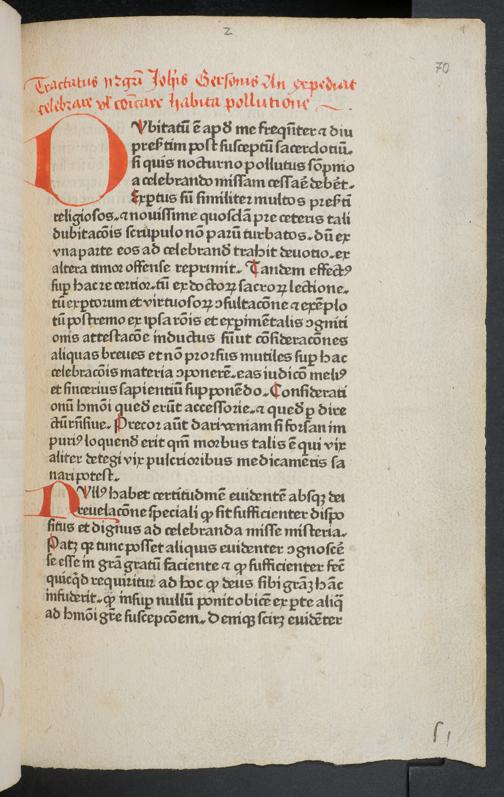 2
70
Tractatus mgr̄i Joh̄is Gersonis An expediat
celebrare vl̓ cōīcare habita pollutione
DVbitatū ē apd̓ me freqn̄ter ⁊ diu
preſtim poſt ſuſceptū sacerdotiū.
ſi quis nocturno pollutus sōpnio
a celebrando miſſam ceſſaꝛe debꝫt.
Exptus ſū ſimiliter multos preſti
religioſos. ⁊ nouiſſime quoſdā pre ceteris tali
dubitacōis ſcrupulo nō parū turbatos. dū ex
vna parte eos ad celebrand̓ trahit deuotio. ex
altera timor offenſe reprimit. Tandem effectꝰ
ſup hac re certior. tū ex doctoꝝ sacroꝝ lectione.
tū exptorum et virtuoſoꝝ ꝯſultacōne ⁊ exēplo
tū poſtremo ex ipſa rōis et exp̲imētalis ꝯgniti
onis atteſtacōe inductus ſū ut cōſideracōnes
aliquas breues et nō prorſus inutiles ſup hac
celebracōis materia ꝯponerē. eas iudicō meliꝰ
et ſincerius sapientiū ſupponēdo. Conſiderati
onū hmōi qued̓ erūt acceſſorie. ⁊ qued̓ p dire
ctū inſiue. Precor aūt dari veniam ſi forſan im
puriꝰ loquend̓ erit qm̄ morbus talis ē qui vix
aliter detegi vix pulcrioribus medicamētis ſa
nari poteſt.
NVllꝰ habet certitudinē euidentē absqꝫ dei
reuelacōne ſpeciali ꝙ ſit ſufficienter diſpo
ſitus et dignus ad celebranda miſſe miſteria.
Patꝫ qꝛ tunc poſſet aliquis euidenter ꝯgnoſcē
ſe eſſe in grā gratū faciente ⁊ ꝙ ſufficienter fec̄
quicqd̓ requiritur ad hoc ꝙ deus ſibi gr̄aꝫ hāc
infuderit. ꝙ inſup nullū ponit obicē ex pte aliq̄
ad hmōi gr̄e ſuſcepcōem. Deniqꝫ scirꝫ euidēter